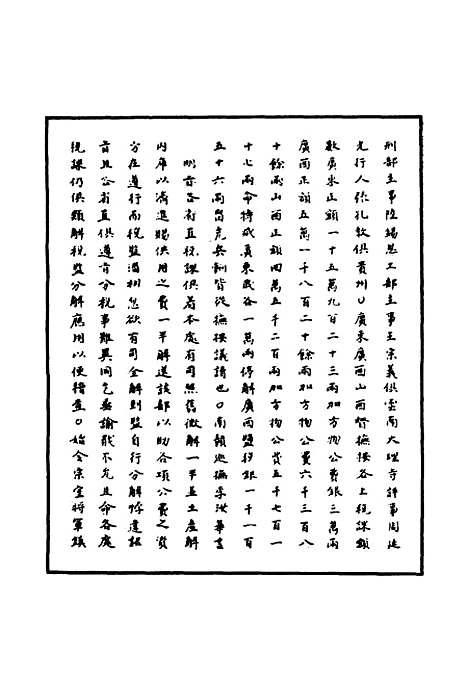 刑部主事陸夢履工部主事王宗義俱雲南大理寺評事周廷
光行人張孔教俱貴州○廣東廣西山西督撫按各上稅課額
數廣東正額一十五萬九百二十三兩加方物公費銀三萬兩
廣西正額五萬一千八百二十餘兩加方物公費六千三百八
十餘兩山西正額四萬五千二百兩加方物公費五千七百一
十七兩命特減廣東歲各一萬兩停解廣西鹽稅銀一千一百
五十六兩留充兵餉皆從撫按議請也○南贛巡撫李汝華言
明旨各省直稅課俱着本處有司照舊徵解一半並土產解
內庫以濟進賜供用之費一半解送該部以助各項公費之資
今在遵行而稅監潘相忽欲有司全解到監自行分解將違詔
旨且各省直俱遵旨分稅事難異同乞嚴諭戒不允且命各處
稅課仍俱類解稅監分解應用以便稽查○始令宗室將軍鎮